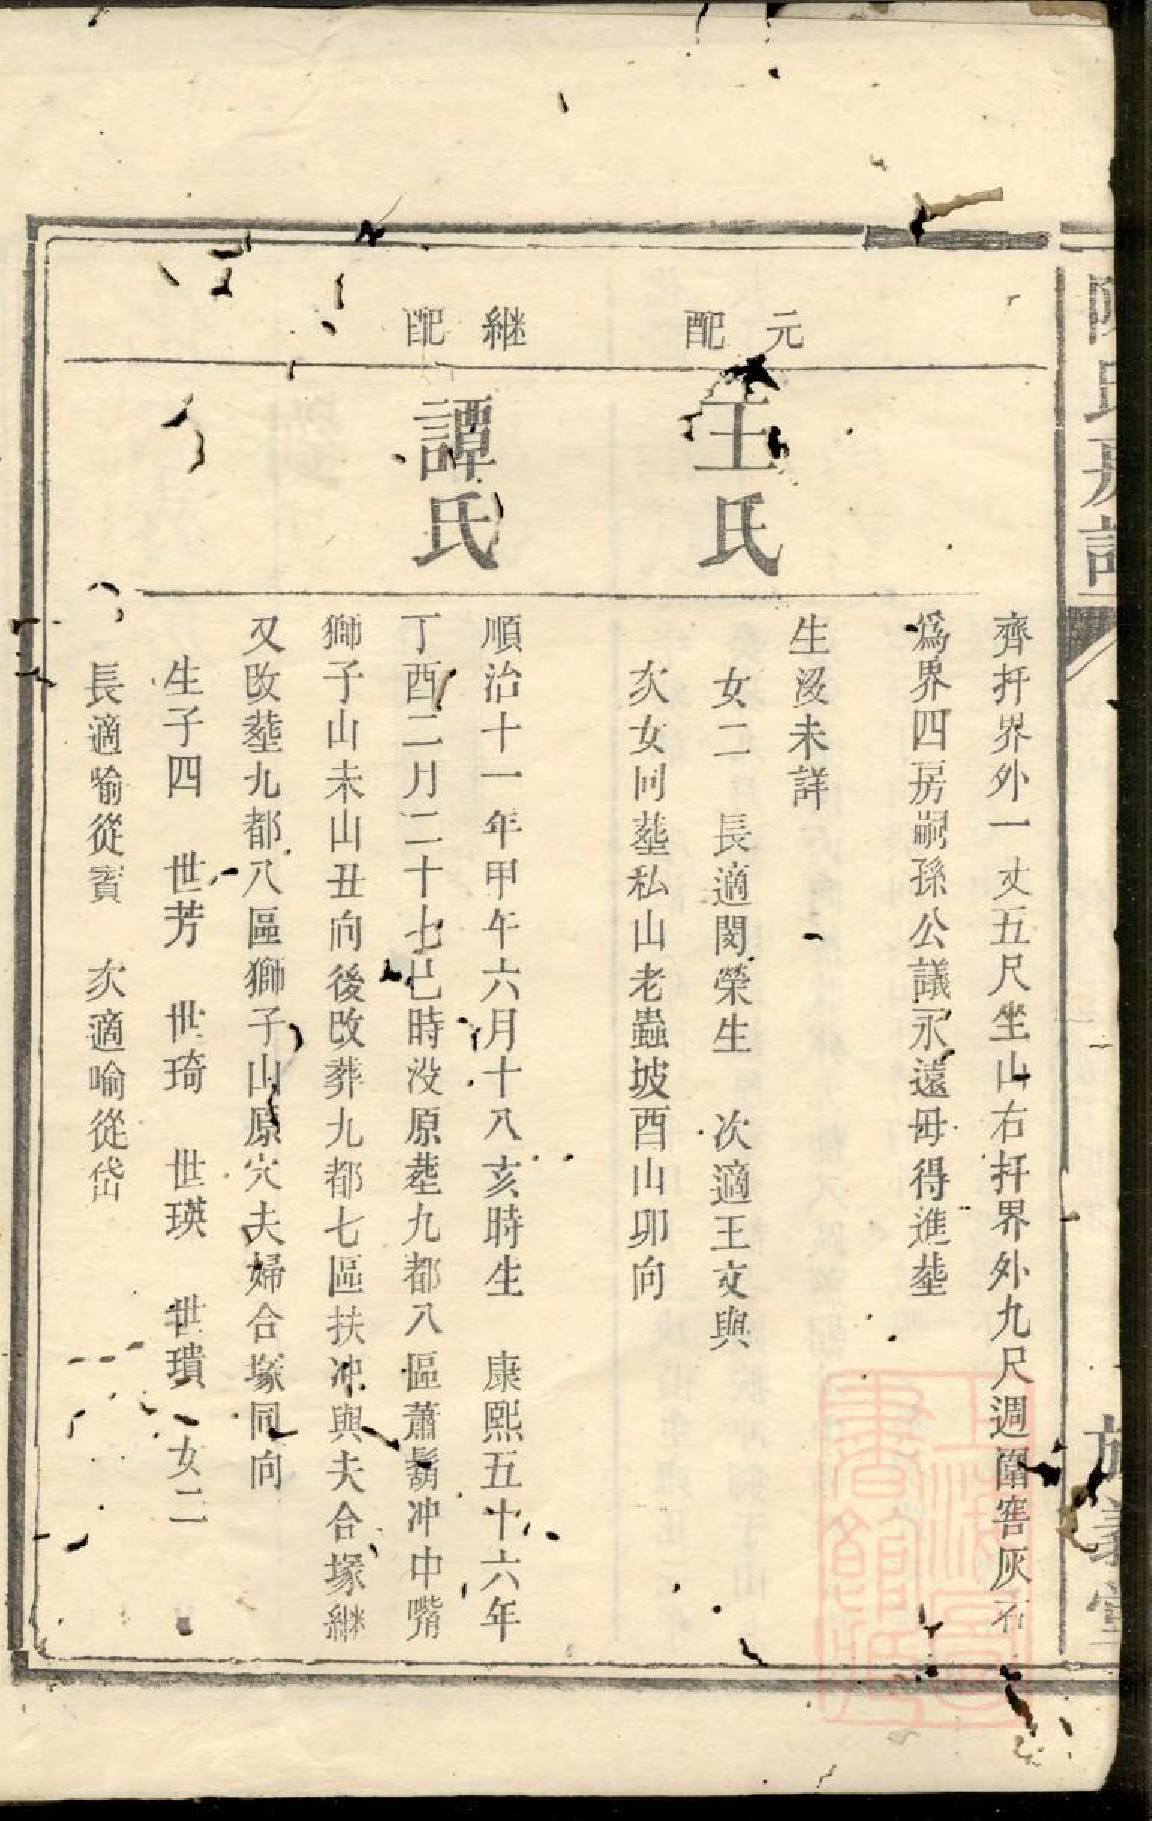 陳氏房譜
齊扦界外一丈五尺坐山右扦界外九尺週圍窖灰石
爲界四房嗣孫公議永遠毋得進塟
元配
王氏
生沒未詳
女二 長適閔榮生 次適王文與
次女同塟私山老蟲坡酉山卯向
繼配
譚氏
順治十一年甲午六月十八亥時生 康熙五十六年
丁酉二月二十七巳時没原塟九都八區蕭鬍冲中嘴
獅子山未山丑向後改葬九都七區扶冲與夫合塚繼
又改塟九都八區獅子山原穴夫婦合塚同向
生子四 世芳 世琦 世瑛 世璝 女二
長適喻從賓 次適喻從岱
義堂
上海圖書館藏